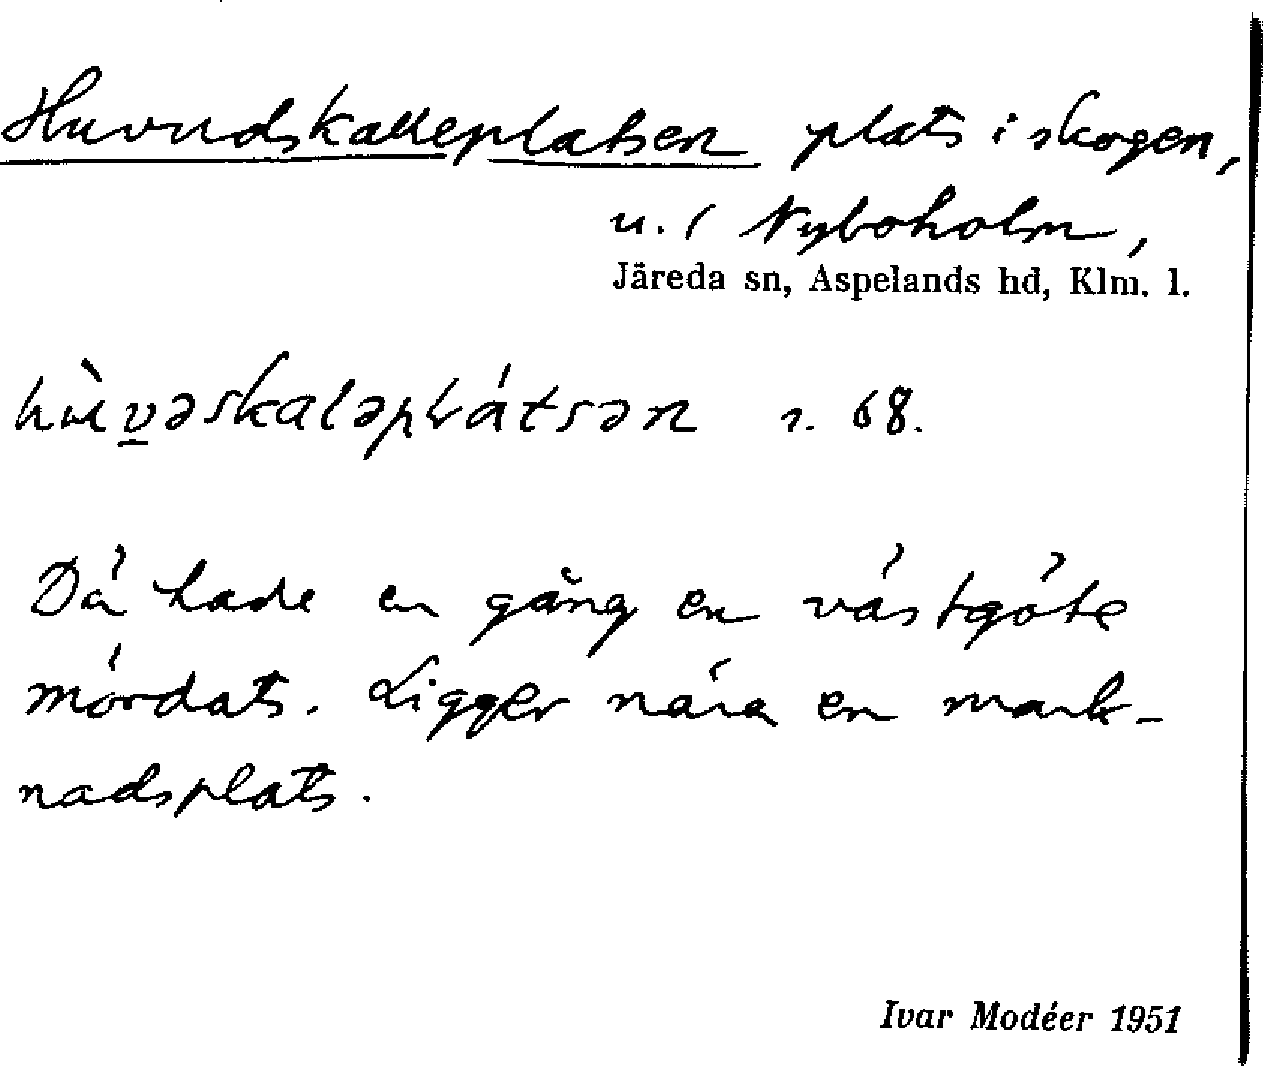 Huvudskalleplatsen plats i skogen,
u. / Nyboholm,
Järeda sn, Aspelands hd, Klm. l.
hùv̱əskaləplátsən s. 68.
Då hade en gång en västgöte
mördats. Ligger nära en mark-
nadsplats.
Ivar Modéer 1951